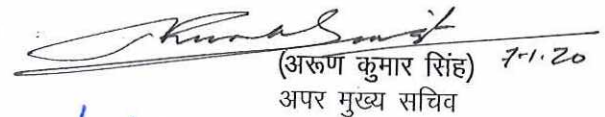 (अरूण कुमार सिंह) 7-1-20
अपर मुख्य सचिव